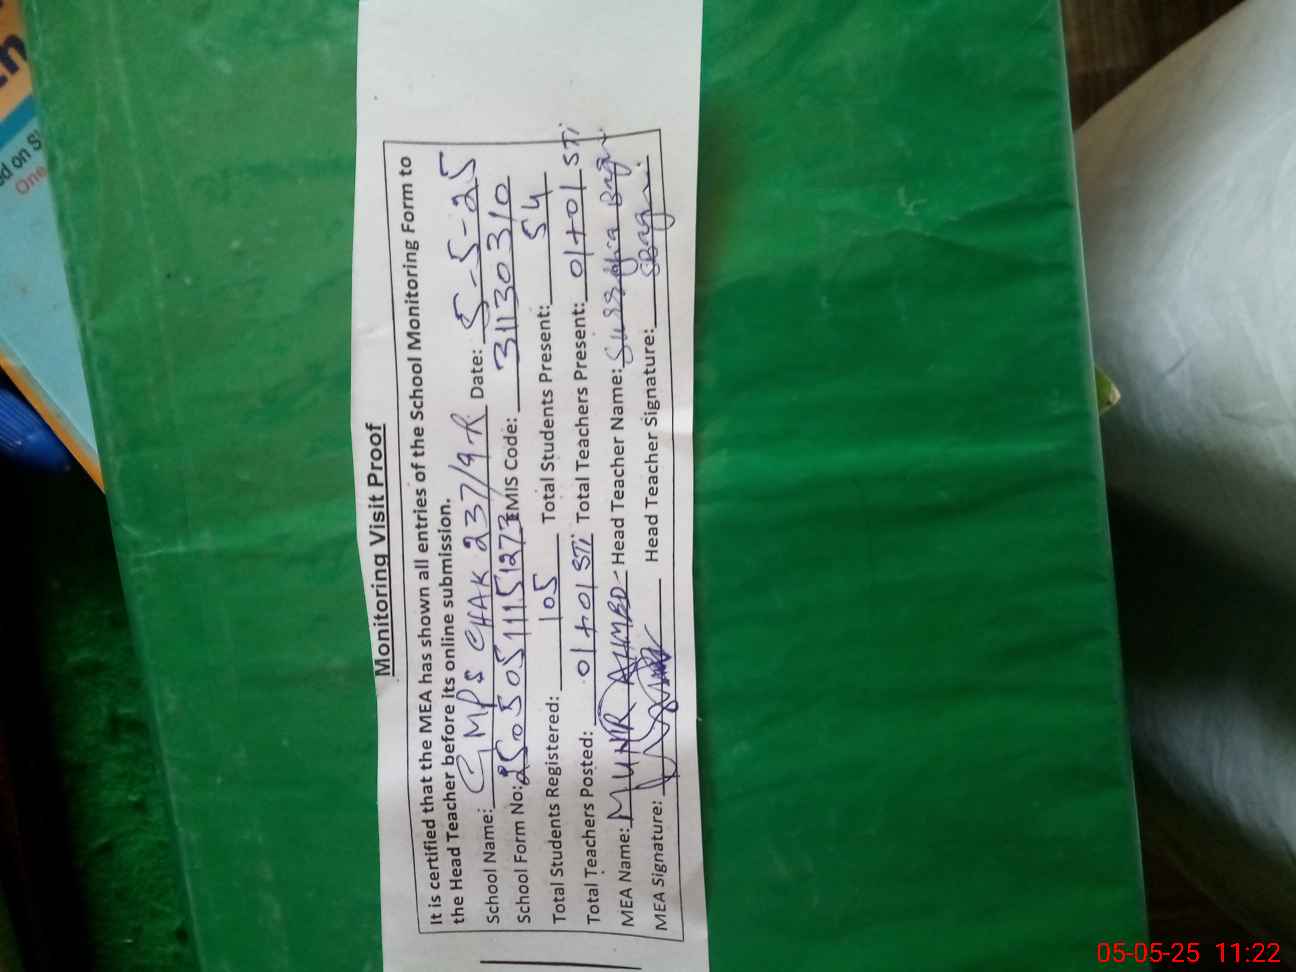 Monitoring Visit Proof
It is certified that the MEA has shown all entries of the School Monitoring Form to
the Head Teacher before its online submission.
School Name: GMPS CHAK 237/9-R Date: 5-5-25
School Form No: 25050511151273 EMIS Code: 31130310
Total Students Registered: 105 Total Students Present: 54
Total Teachers Posted: 01+01 STi Total Teachers Present: 01+01 STi
MEA Name: MUNIR AHMED Head Teacher Name:
MEA Signature: Head Teacher Signature:
ed on S
One
05-05-25 11:22